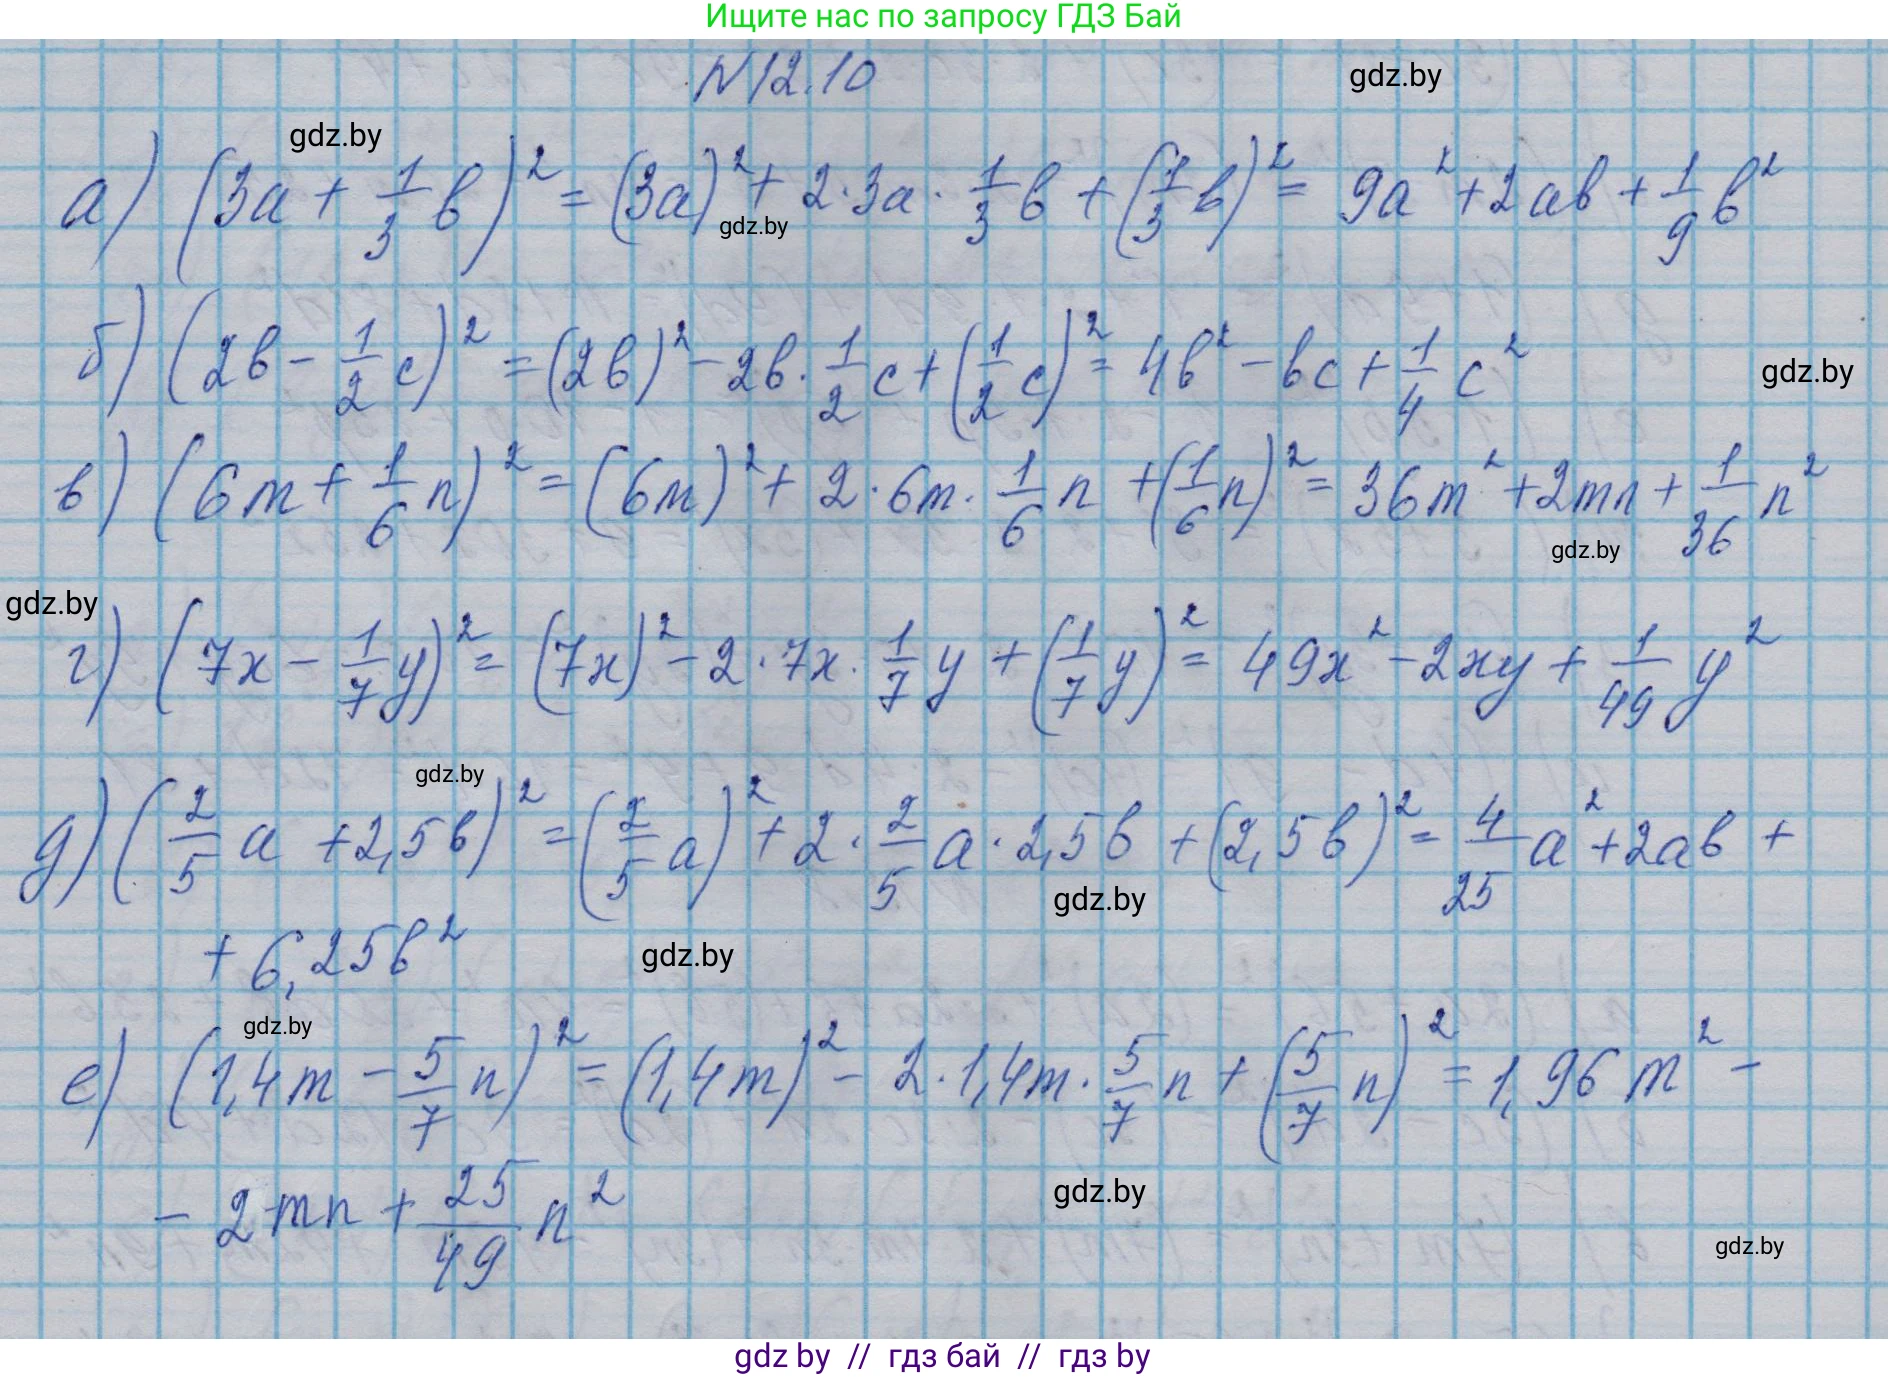 Ищите нас по запросу ГДЗ Бай
N12.10
gdz.by
gdz.by
а) (3a + 1/3 b)² = (3a)² + 2·3a · 1/3 b + (1/3 b)² = 9a² + 2ab + 1/9 b²
gdz.by
б) (2b - 1/2 c)² = (2b)² - 2b · 1/2 c + (1/2 c)² = 4b² - bc + 1/4 c²
gdz.by
в) (6m + 1/6 n)² = (6m)² + 2 · 6m · 1/6 n + (1/6 n)² = 36m² + 2mn + 1/36 n²
gdz.by
gdz.by
г) (7x - 1/7 y)² = (7x)² - 2 · 7x · 1/7 y + (1/7 y)² = 49x² - 2xy + 1/49 y²
gdz.by
д) (2/5 a + 2,5b)² = (2/5 a)² + 2 · 2/5 a · 2,5b + (2,5b)² = 4/25 a² + 2ab +
gdz.by
+ 6,25b²
gdz.by
gdz.by
е) (1,4m - 5/7 n)² = (1,4m)² - 2 · 1,4m · 5/7 n + (5/7 n)² = 1,96m² -
gdz.by
- 2mn + 25/49 n²
gdz.by
gdz by // гдз бай // гдз by